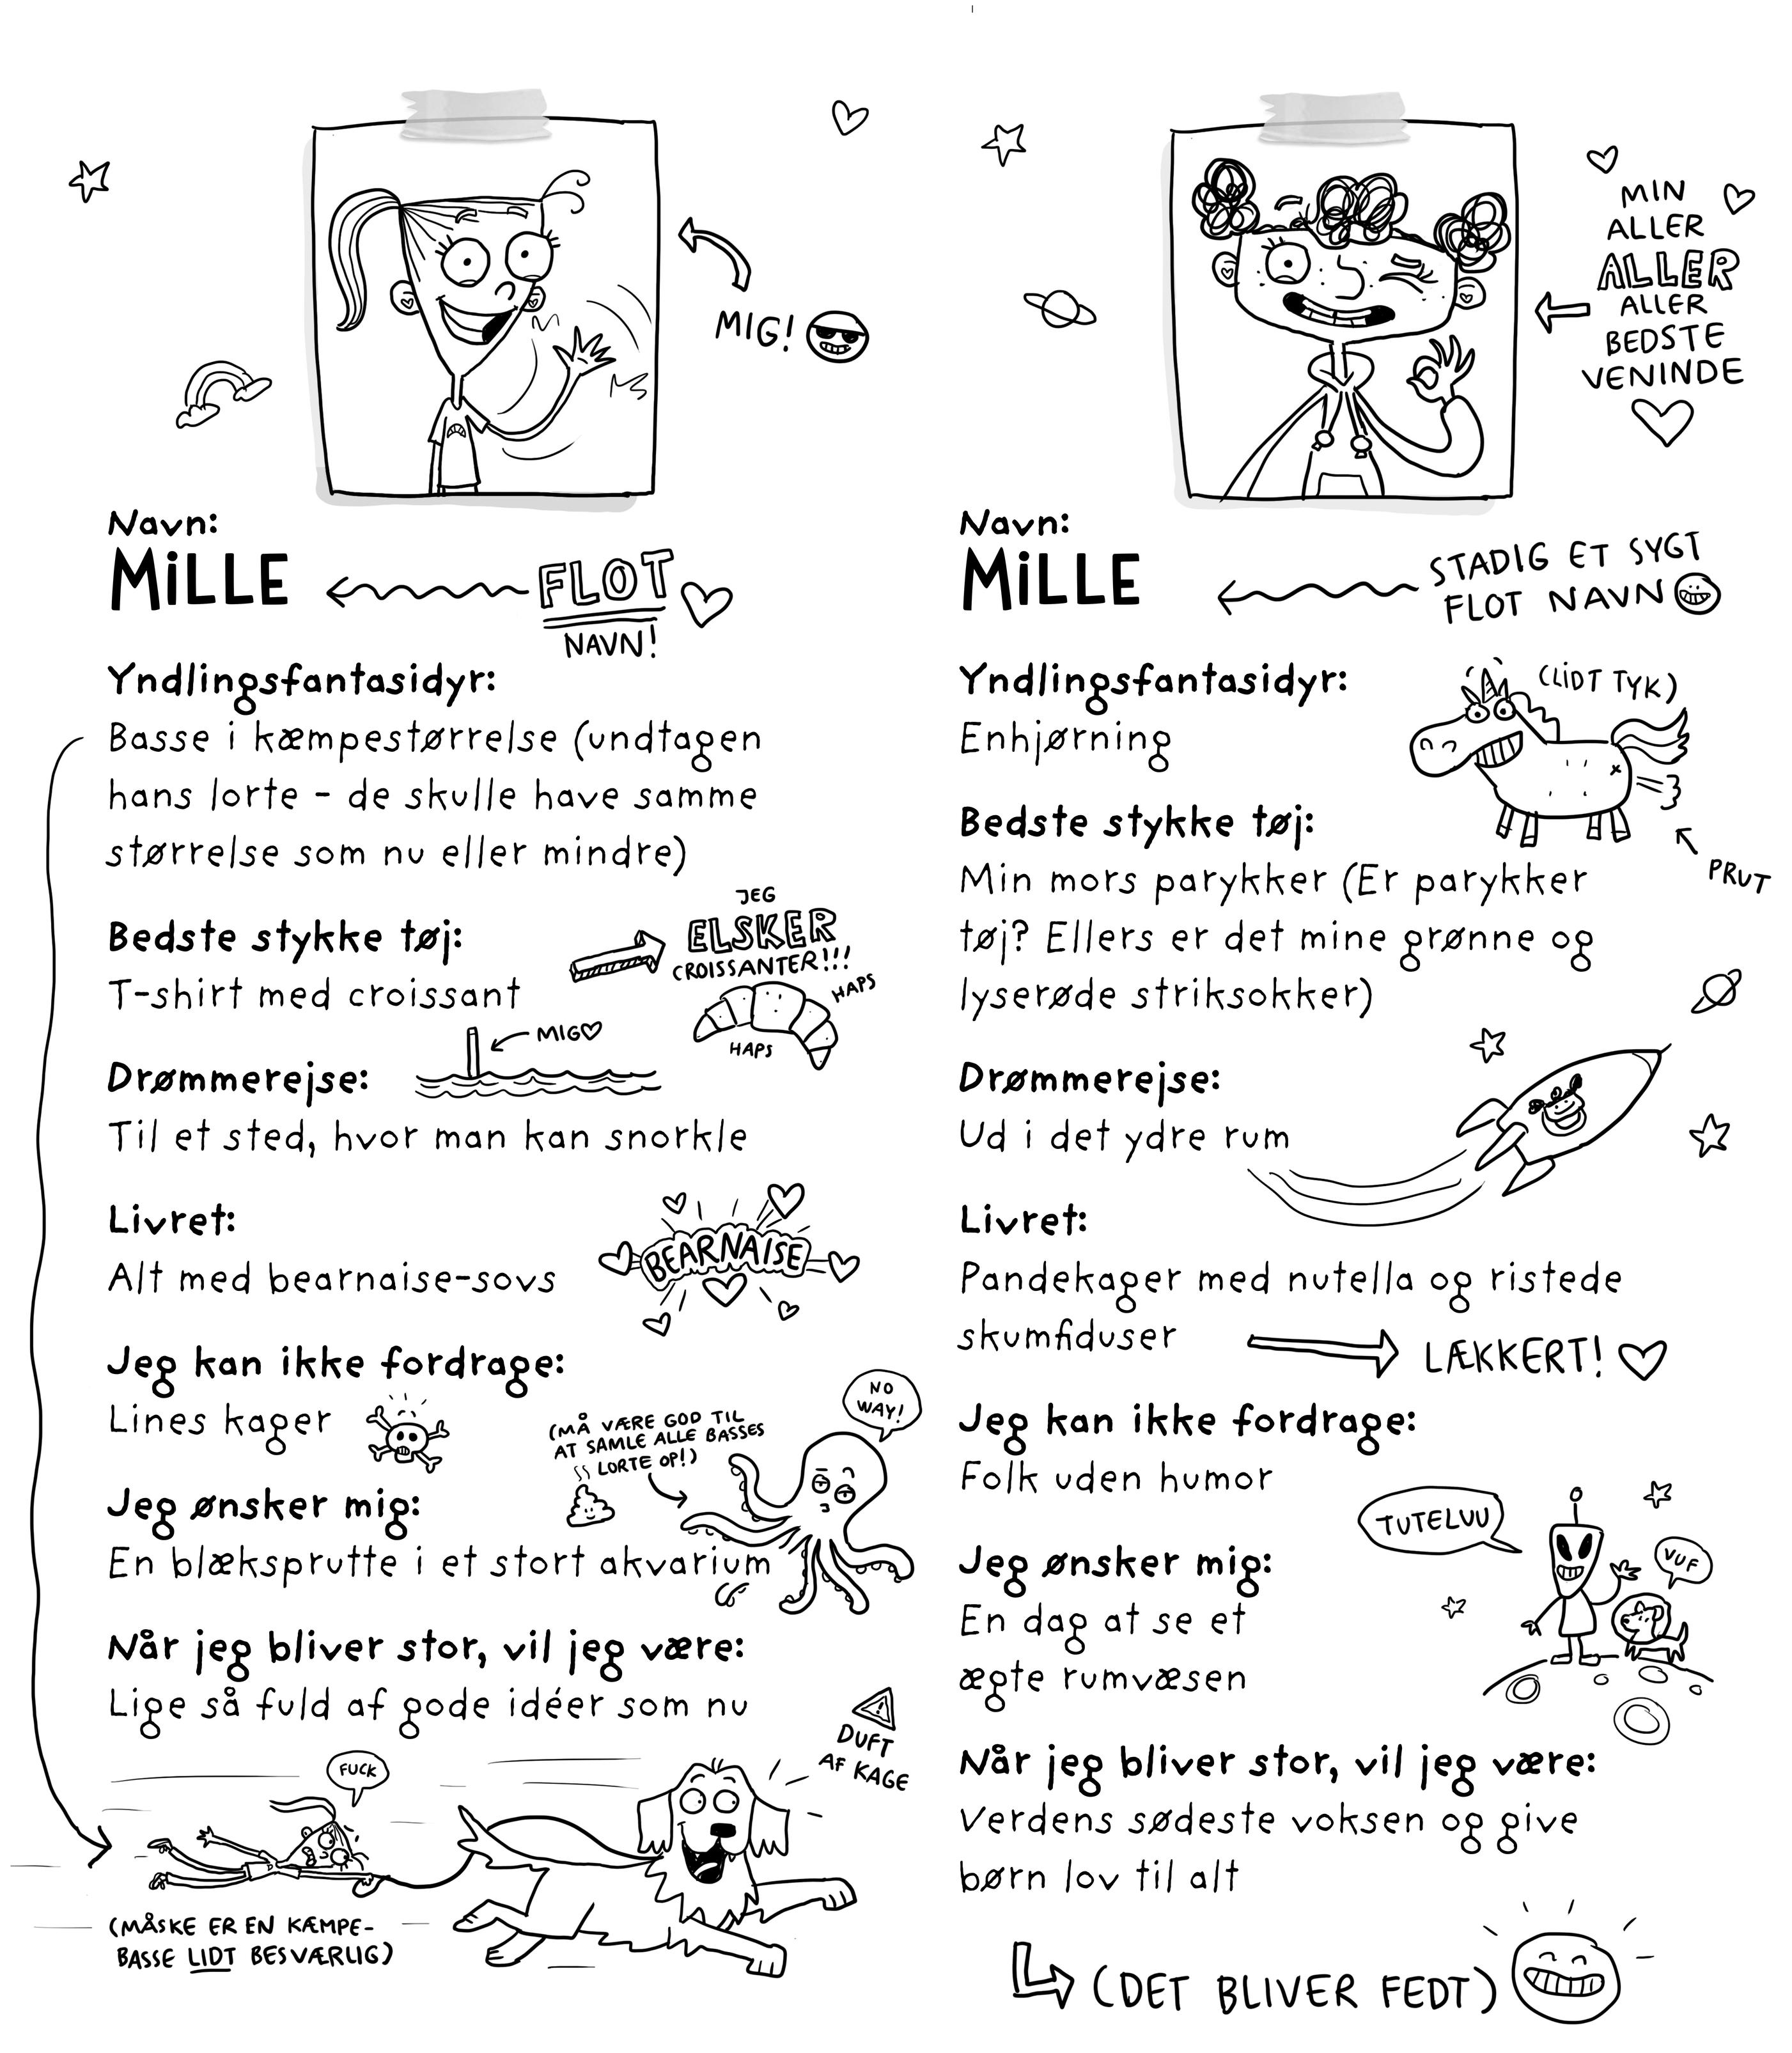 MIG!
Navn:
MiLLE
FLOT
NAVN!
Yndlingsfantasidyr:
Basse i kæmpestørrelse (undtagen
hans lorte – de skulle have samme
størrelse som nu eller mindre)
Bedste stykke tøj:
T-shirt med croissant
JEG
ELSKER
CROISSANTER!!!
HAPS
HAPS
MIG
Drømmerejse:
Til et sted, hvor man kan snorkle
Livret:
Alt med bearnaise-sovs
BEARNAISE
Jeg kan ikke fordrage:
Lines kager
(MÅ VÆRE GOD TIL
AT SAMLE ALLE BASSES
LORTE OP!)
NO
WAY!
Jeg ønsker mig:
En blæksprutte i et stort akvarium
Når jeg bliver stor, vil jeg være:
Lige så fuld af gode idéer som nu
DUFT
AF KAGE
FUCK
(MÅSKE ER EN KÆMPE-
BASSE LIDT BESVÆRLIG)
MIN
ALLER
ALLER
ALLER
BEDSTE
VENINDE
Navn:
MiLLE
STADIG ET SYGT
FLOT NAVN
Yndlingsfantasidyr:
Enhjørning
(LIDT TYK)
PRUT
Bedste stykke tøj:
Min mors parykker (Er parykker
tøj? Ellers er det mine grønne og
lyserøde striksokker)
Drømmerejse:
Ud i det ydre rum
Livret:
Pandekager med nutella og ristede
skumfiduser
LÆKKERT!
Jeg kan ikke fordrage:
Folk uden humor
TUTELUU
VUF
Jeg ønsker mig:
En dag at se et
ægte rumvæsen
Når jeg bliver stor, vil jeg være:
Verdens sødeste voksen og give
børn lov til alt
(DET BLIVER FEDT)